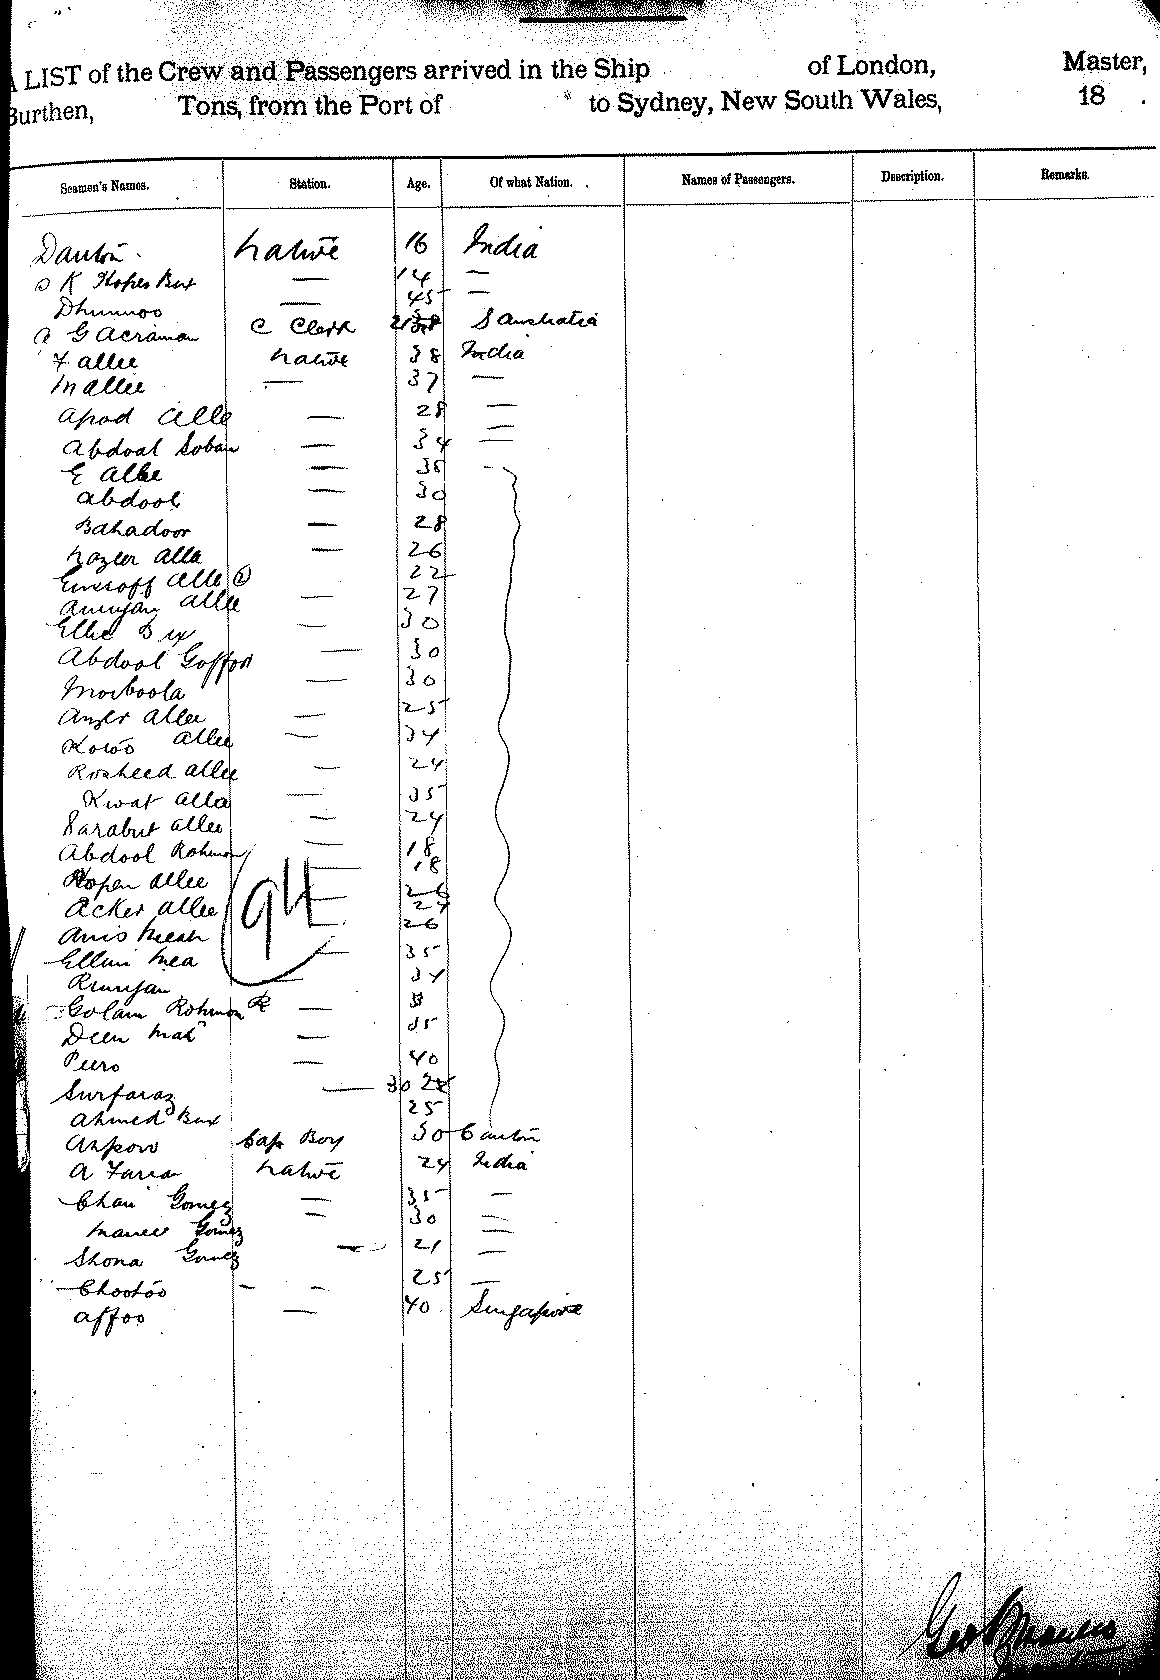 A LIST of the Crew and Passengers arrived in the Ship of London, Master,
Burthen, Tons, from the Port of to Sydney, New South Wales, 18 .
Seamen's Names. Station. Age. Of what Nation. Names of Passengers. Description. Remarks.
Native 16 India
14 —
Dhunnoo — 45 —
G Acraman C Clerk S Australia
F allee Native 38 India
M allee — 37 —
Apod Alle — 28 —
Abdool Soban — 34 —
E Allee — 35 —
Abdool — 30
Bahadoor — 28
Nazler Alla — 26
Alle 22
allee — 27
Ellie Bux — 30
Abdool Goffoor — 30
Moxboola — 30
Anzer Allee — 25
Kowoo Allee — 34
Rosheed Allee — 24
Kwat Alla — 35
Sarabut Allee — 24
Abdool Rohmon — 18
Allee — 18
Acker Allee —
Anis Meah — 26
Ellim Mea — 35
— 34
Golam Rohmon —
Deen Mah — 35
Peero — 40
Surfaraz — 30
Ahmed Bux 25
Ahpow Cap Boy 30 Canton
A Faria Native 24 India
Chari Gomez — 35 —
Manell Gomez — 30 —
Shona Gomez — 21 —
Chootoo — 25 —
Affoo — 40 Singapore
94